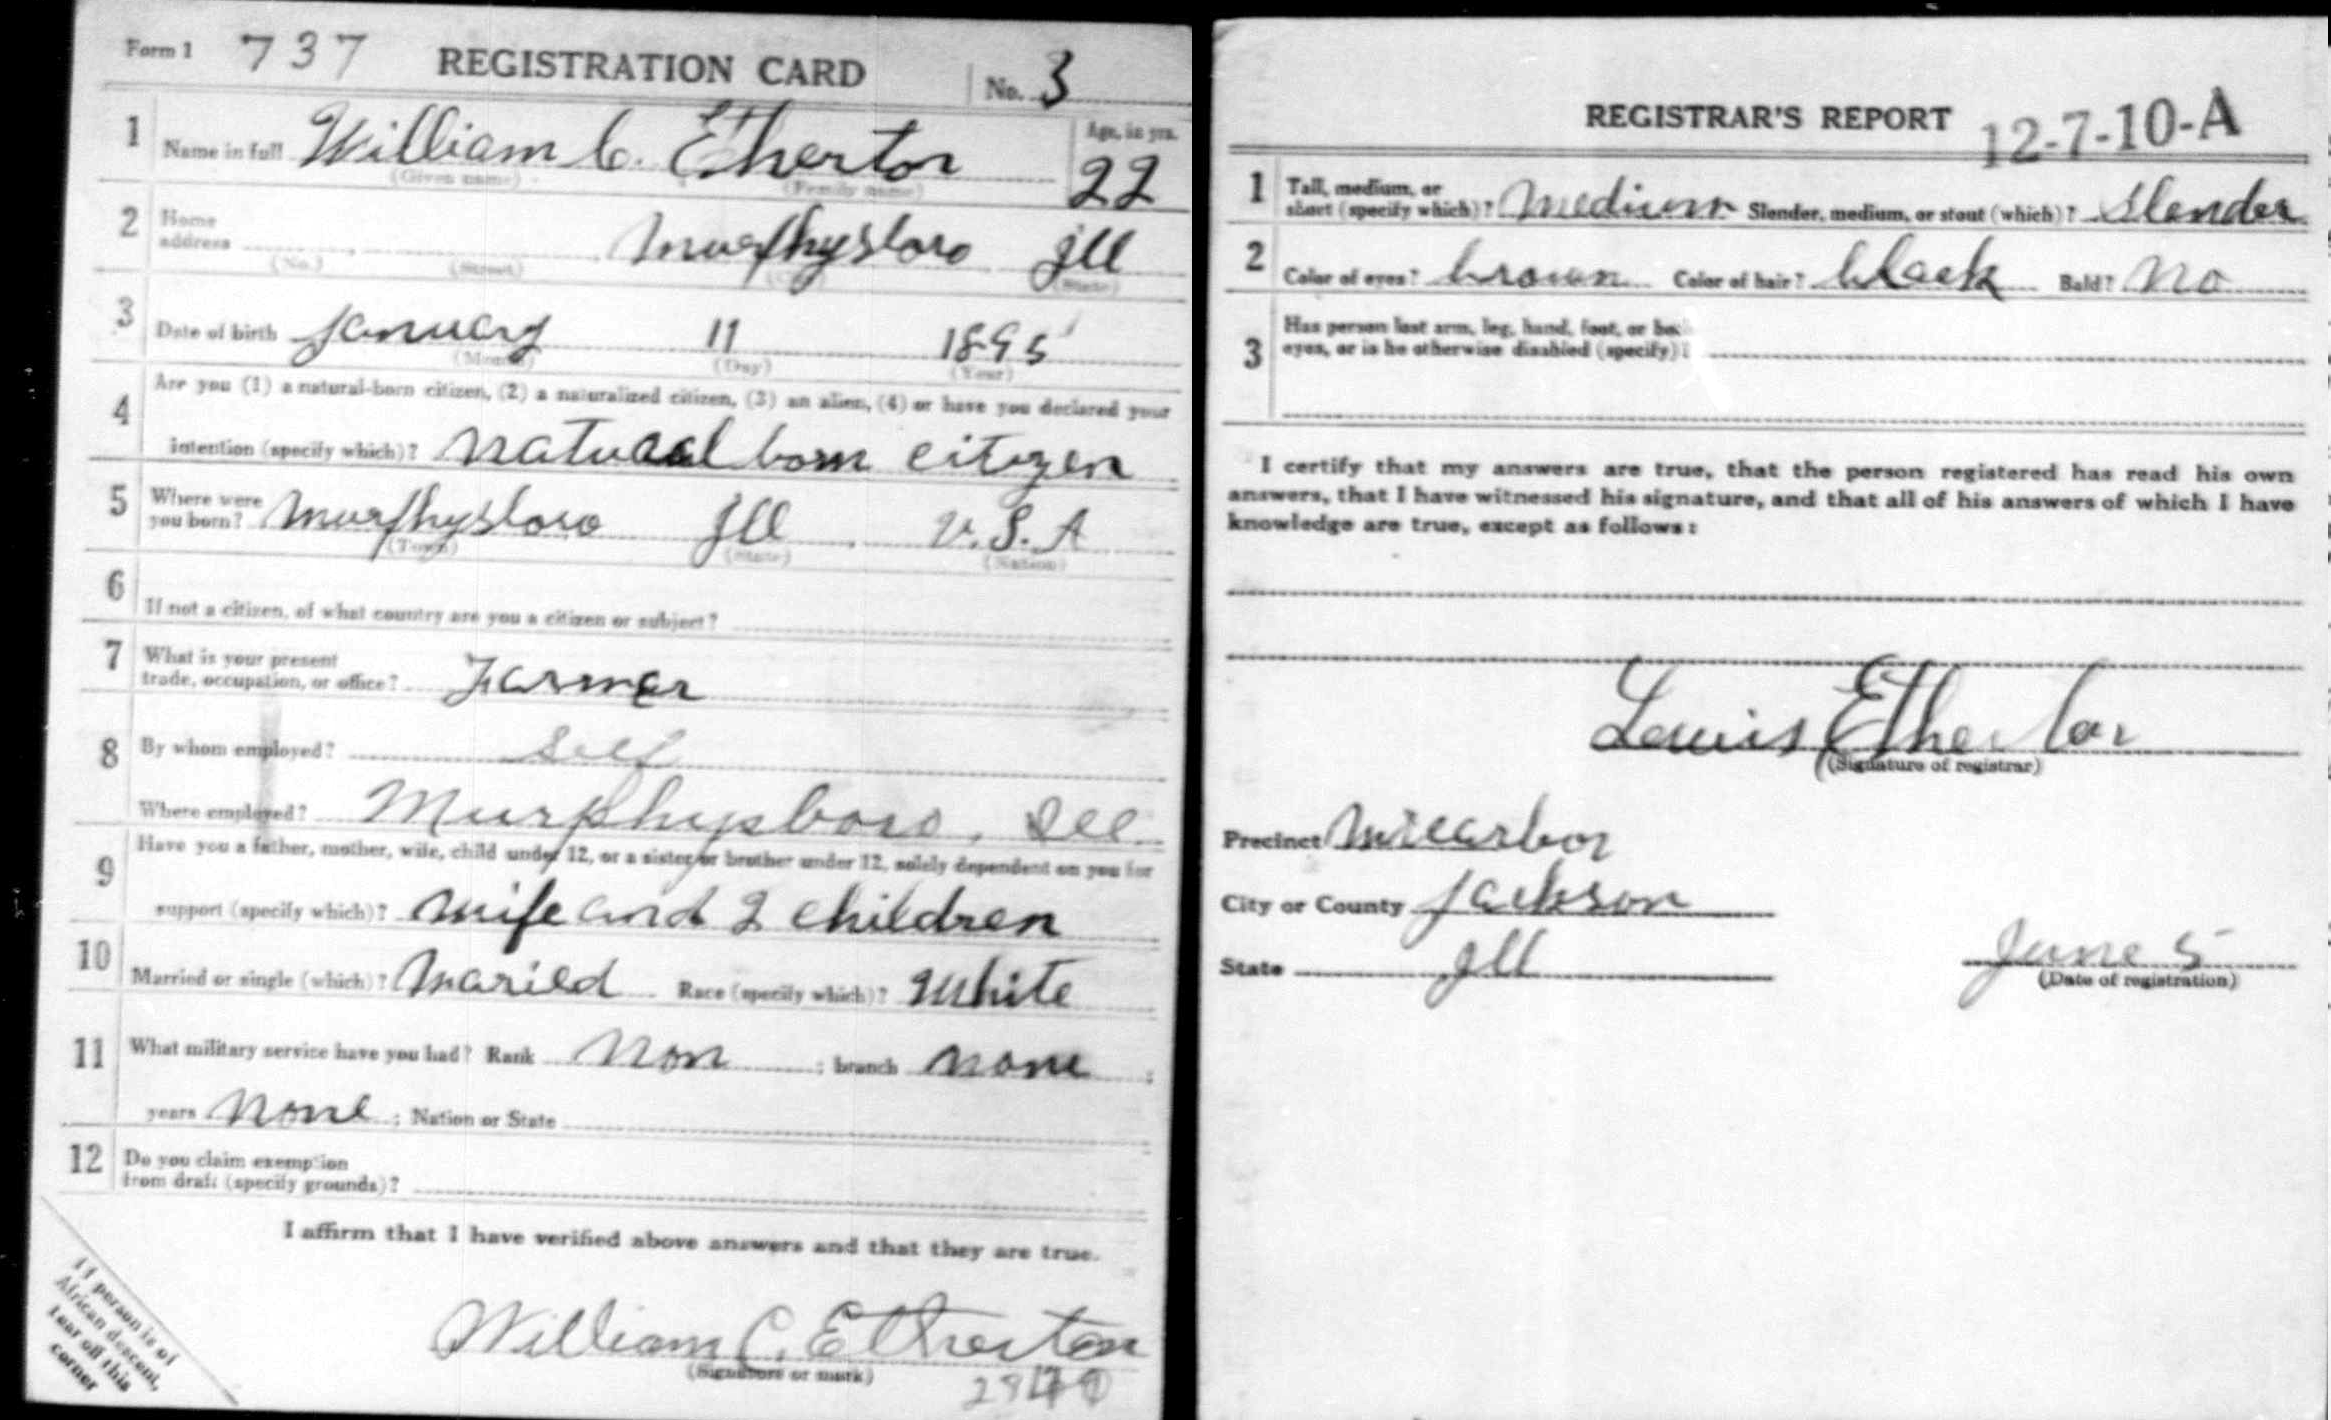 Form 1 737 REGISTRATION CARD No. 3
1 Name in full William C. Etherton Age, in yrs. 22
(Given name) (Family name)
2 Home address Murphysboro Ill
(No.) (Street) (City) (State)
3 Date of birth January 11 1895
(Month) (Day) (Year)
4 Are you (1) a natural-born citizen, (2) a naturalized citizen, (3) an alien, (4) or have you declared your
intention (specify which)? natural born citizen
5 Where were you born? Murphysboro Ill U.S.A
(Town) (State) (Nation)
6 If not a citizen, of what country are you a citizen or subject?
7 What is your present
trade, occupation, or office? Farmer
8 By whom employed? Self
Where employed? Murphysboro, Ill
9 Have you a father, mother, wife, child under 12, or a sister or brother under 12, solely dependent on you for
support (specify which)? wife and 2 children
10 Married or single (which)? Marild Race (specify which)? White
11 What military service have you had? Rank Non ; branch none ;
years None ; Nation or State
12 Do you claim exemption
from draft (specify grounds)?
I affirm that I have verified above answers and that they are true.
William C. Etherton
(Signature or mark)
If person is of
African descent,
tear off this
corner
REGISTRAR'S REPORT 12-7-10-A
1 Tall, medium, or
short (specify which)? Medium Slender, medium, or stout (which)? Slender
2 Color of eyes? brown Color of hair? black Bald? No
3 Has person lost arm, leg, hand, foot, or bo
eyes, or is he otherwise disabled (specify)?
I certify that my answers are true, that the person registered has read his own
answers, that I have witnessed his signature, and that all of his answers of which I have
knowledge are true, except as follows:
Lewis Etherton
(Signature of registrar)
Precinct
City or County Jackson
State Ill June 5
(Date of registration)